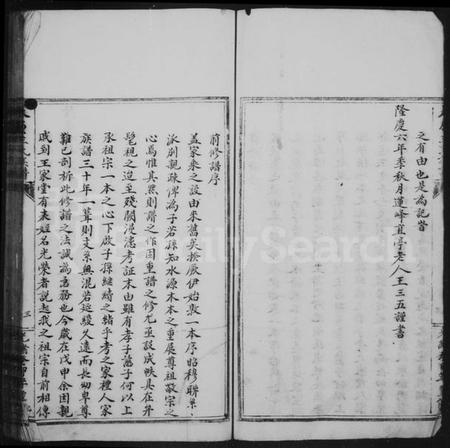 之有由也是為記耳
隆慶六年季秋月蓮峰直亭老人王三五謹書
前修譜序
蓋家乘之設由來舊矣揆厥伊始裴一本序昭穆聯衆
派別親疎俾為子若孫知水源木本之重展尊祖敬宗之
心焉惟其然則譜之作固重譜之修尤亟設或帙具在弁
髦視之迨至殘闕漫漶考証末由雖有孝子慈孫何以上
承祖宗一本之心下啟子孫繼緒之緒乎考之家禮人家
族譜三十年一葺則支系無混若延緩久遠而長幼卑尊
難已剖析此修譜之法誠為急務也今歲在戊申余因親
戚到王家堂有夫姓名光榮者說起我之祖宗自前相傳
FamilySearch